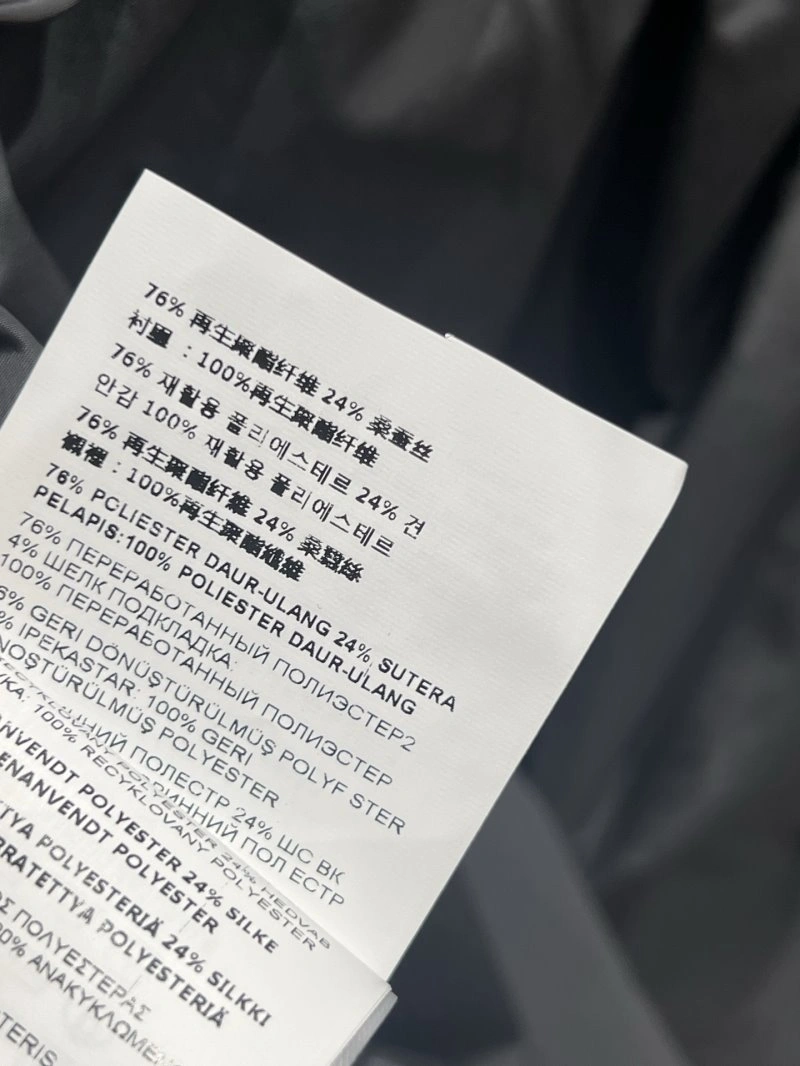 76% 再生聚酯纤维 24% 桑蚕丝
衬里 : 100%再生聚酯纤维
76% 재활용 폴리에스테르 24% 견
안감 100% 재활용 폴리에스테르
76% 再生聚酯纖維 24% 桑蠶絲
襯裡 : 100%再生聚酯纖維
76% PCLIESTER DAUR-ULANG 24% SUTERA
PELAPIS:100% POLIESTER DAUR-ULANG
76% ПЕРЕРАБОТАННЫЙ ПОЛИЭСТЕР2
4% ШЕЛК ПОДКЛАДКА:
100% ПЕРЕРАБОТАННЫЙ ПОЛИЭСТЕР
6% GERI DÖNÜŞTÜRÜLMÜŞ POLYF STER
% IPEKASTAR: 100% GERI
NOŞTÜRÜLMÜŞ POLYESTER
ПОЛЕСТР 24% ШС ВК
КА: 100% ПОЛ ЕСТР
24% HEDVÁB
100% RECYKLOVANÝ POLYESTER
NVENDT POLYESTER 24% SILKE
ENANVENDT POLYESTER
TYA POLYESTERIÄ 24% SILKKI
RRATETTYA POLYESTERIÄ
ΠΟΛΥΕΣΤΕΡΑΣ
00% ΑΝΑΚΥΚΛΩΜΕΝ
TERIS